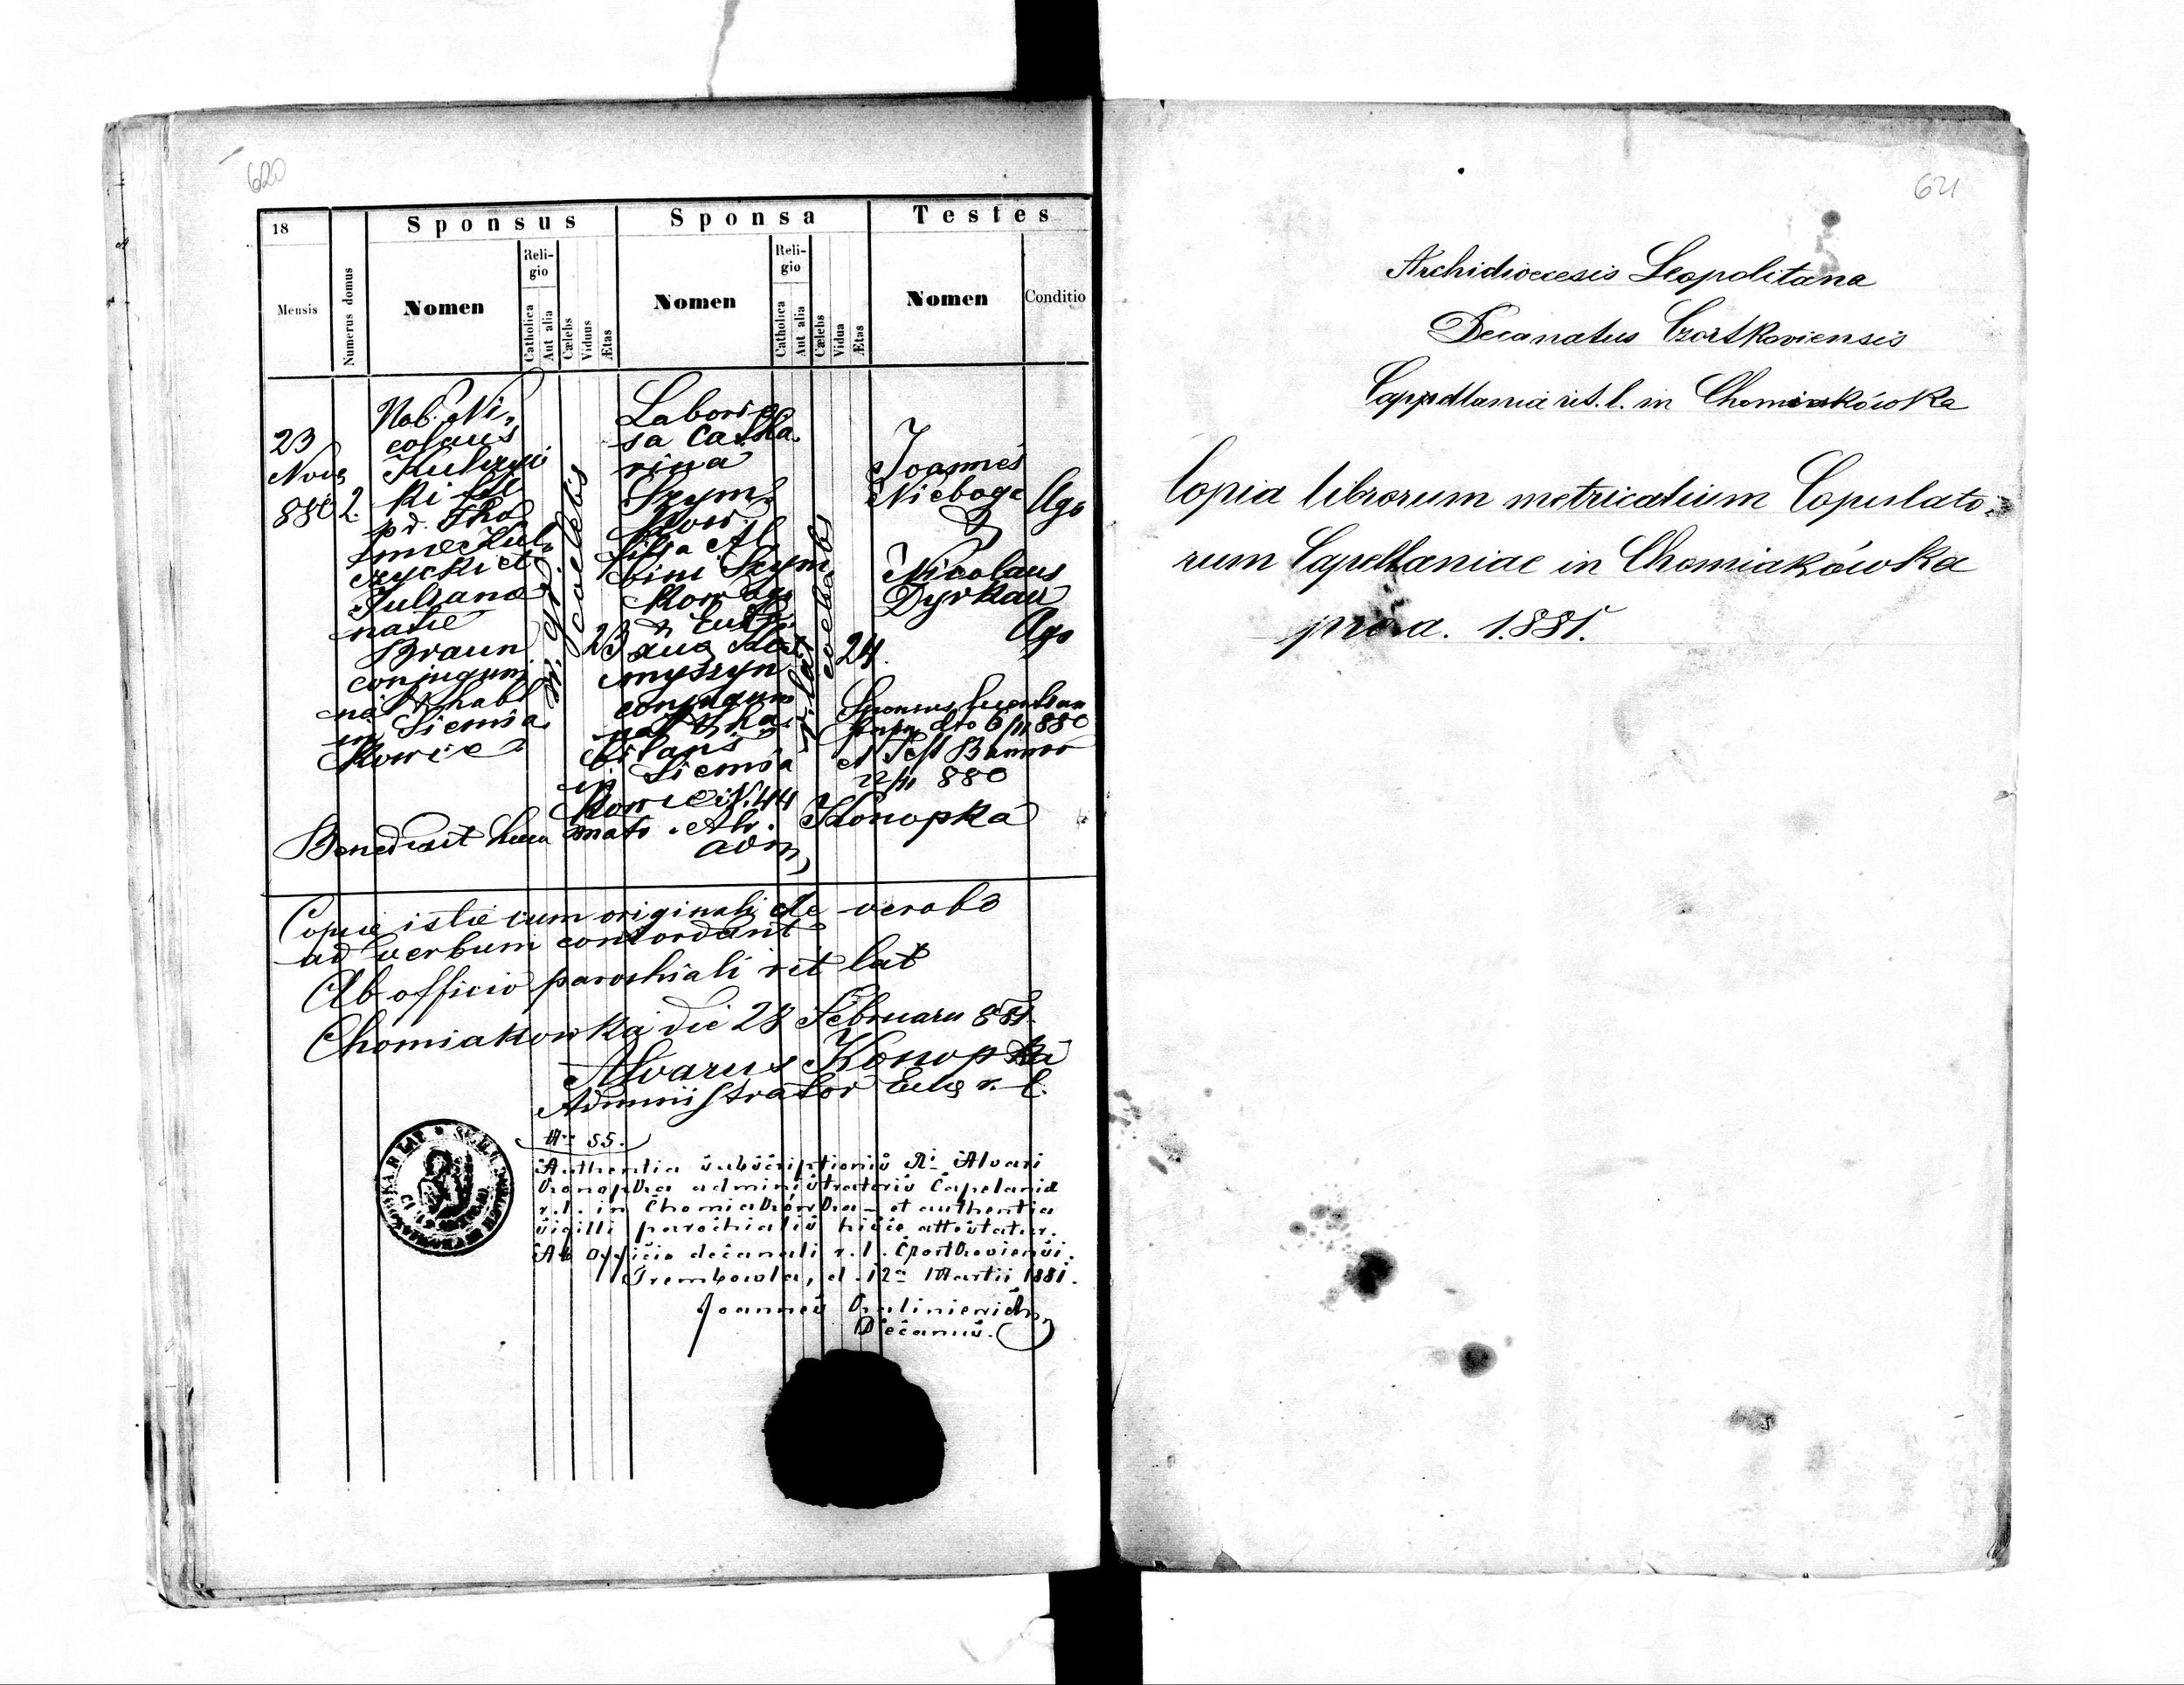 620
18
Sponsus
Sponsa
Testes
Mensis
Numerus domus
Nomen
Religio
Catholica
Aut alia
Cælebs
Viduus
Ætas
Nomen
Religio
Catholica
Aut alia
Cælebs
Vidua
Ætas
Nomen
Conditio
23
Nov
880
2.
Nob. Ni,
colaus
pd. Tho
Juliana
natae
Braun
conjugum
in Siemia
Kowce
coelebs
23
Laborio
sa Catha
rina
Szym
Kow
filia Al
bini Szym
Kow
conjugum
bitans
in Siemia
Kowce N. 44
coelebs
24
Joannes
Nieboga
Ago
Nicolaus
Dyrkau
Ago
dto 6/11 880
et Test Bannor
22/11 880
Benedixit hucce mato. Alv. Konopka
adm
Copiae istae cum originali de verbo
ad verbum concordant
Ab officio parochiali rit lat
Chomiakowka die 28 Februarii 881.
Alvarus Konopka
Administrator Eccl r. l.
Nro 55.
Authentia subscriptionis Rdi Alvari
Konopka administratoris Capelaniae
r. l. in Chomiakówka – et authentia
sigilli parochialis hisce attestatur.
Ab Officio decanali r. l. Czortkoviensi.
Trembowla, d. 12a Martii 1881.
Joannes
Decanus.
621
Archidioecesis Leopolitana
Decanatus Czortkoviensis
Cappellania rit. l. in Chomiakówka
Copia librorum metricalium Copulato,
rum Capellaniae in Chomiakówka
pro a. 1881.